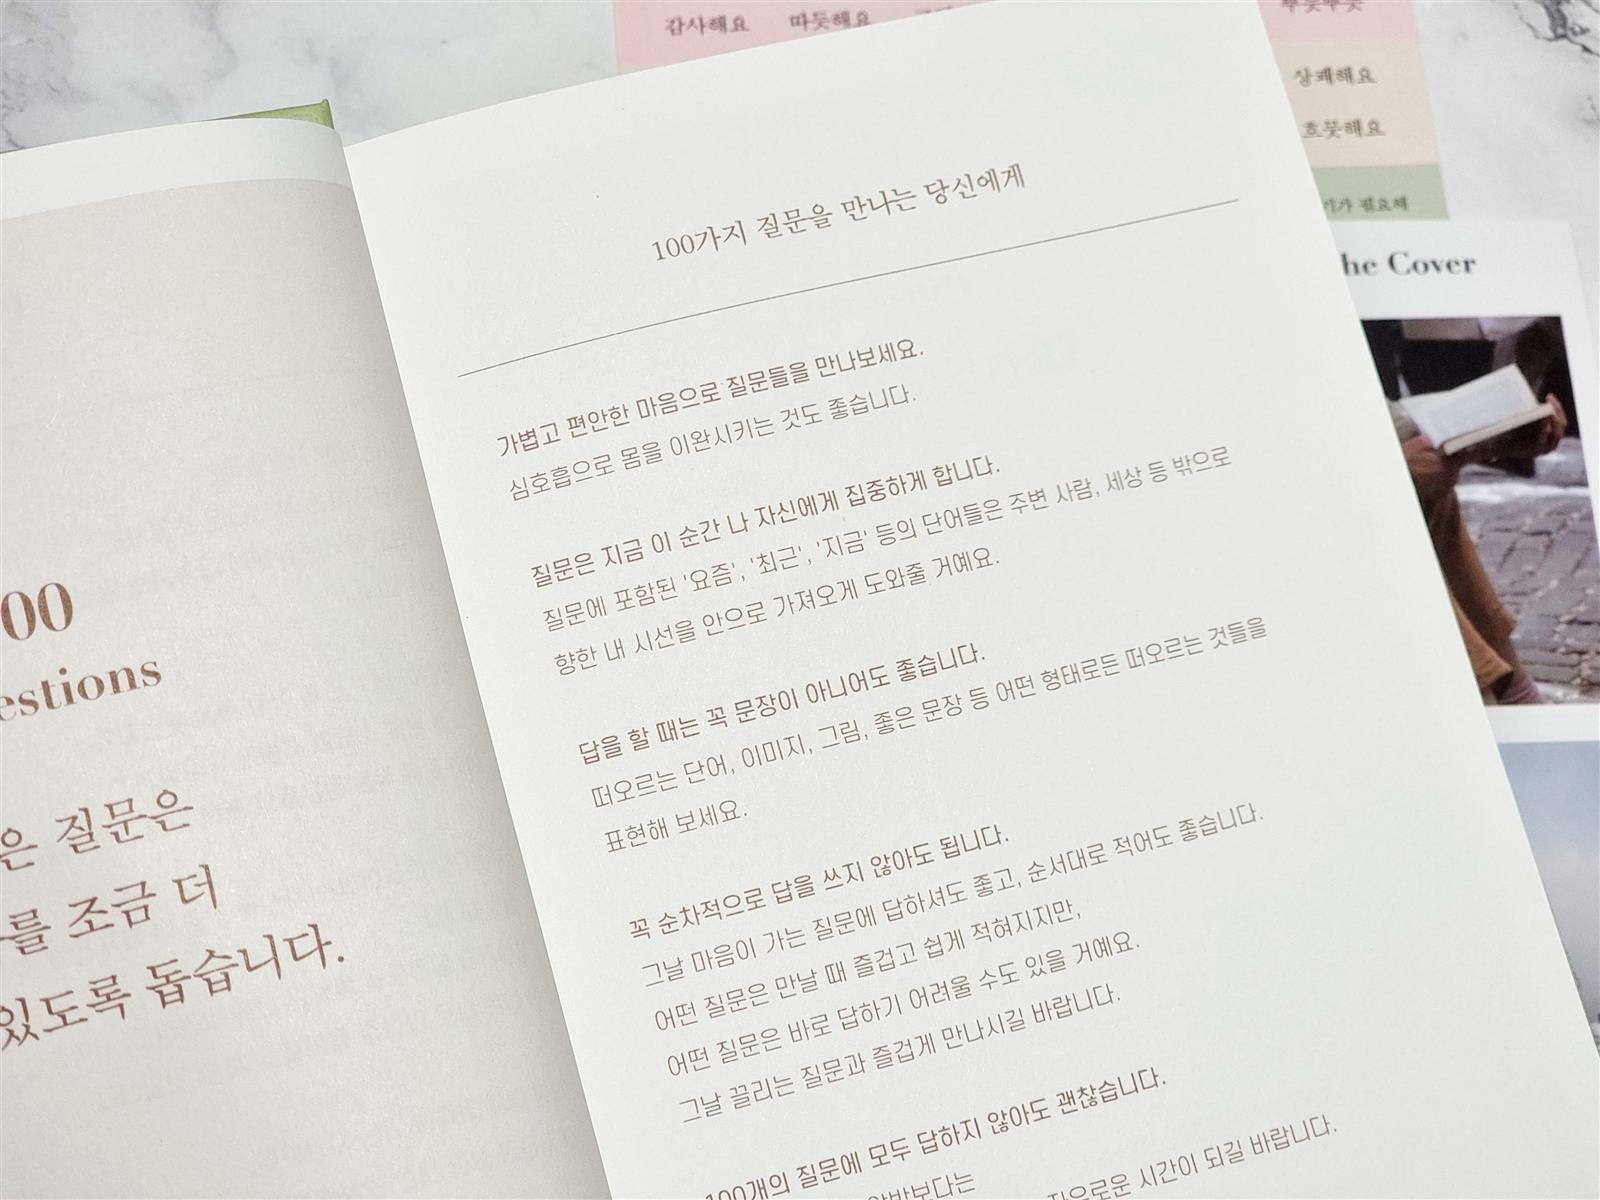 감사해요 따듯해요
뿌듯뿌듯
상쾌해요
흐뭇해요
기가 필요해
he Cover
00
estions
은 질문은
를 조금 더
있도록 돕습니다.
100가지 질문을 만나는 당신에게
가볍고 편안한 마음으로 질문들을 만나보세요.
심호흡으로 몸을 이완시키는 것도 좋습니다.
질문은 지금 이 순간 나 자신에게 집중하게 합니다.
질문에 포함된 '요즘', '최근', '지금' 등의 단어들은 주변 사람, 세상 등 밖으로
향한 내 시선을 안으로 가져오게 도와줄 거예요.
답을 할 때는 꼭 문장이 아니어도 좋습니다.
떠오르는 단어, 이미지, 그림, 좋은 문장 등 어떤 형태로든 떠오르는 것들을
표현해 보세요.
꼭 순차적으로 답을 쓰지 않아도 됩니다.
그날 마음이 가는 질문에 답하셔도 좋고, 순서대로 적어도 좋습니다.
어떤 질문은 만날 때 즐겁고 쉽게 적혀지지만,
어떤 질문은 바로 답하기 어려울 수도 있을 거예요.
그날 끌리는 질문과 즐겁게 만나시길 바랍니다.
100개의 질문에 모두 답하지 않아도 괜찮습니다.
압박보다는
자유로운 시간이 되길 바랍니다.